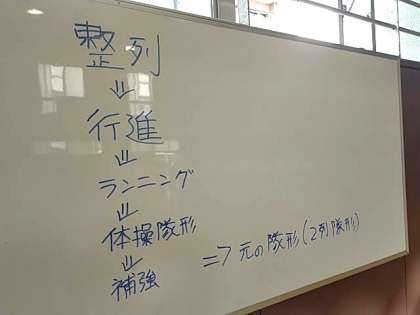 整列
⇓
行進
⇓
ランニング
⇓
体操隊形
⇓
補強 ⇒ 元の隊形(2列隊形)